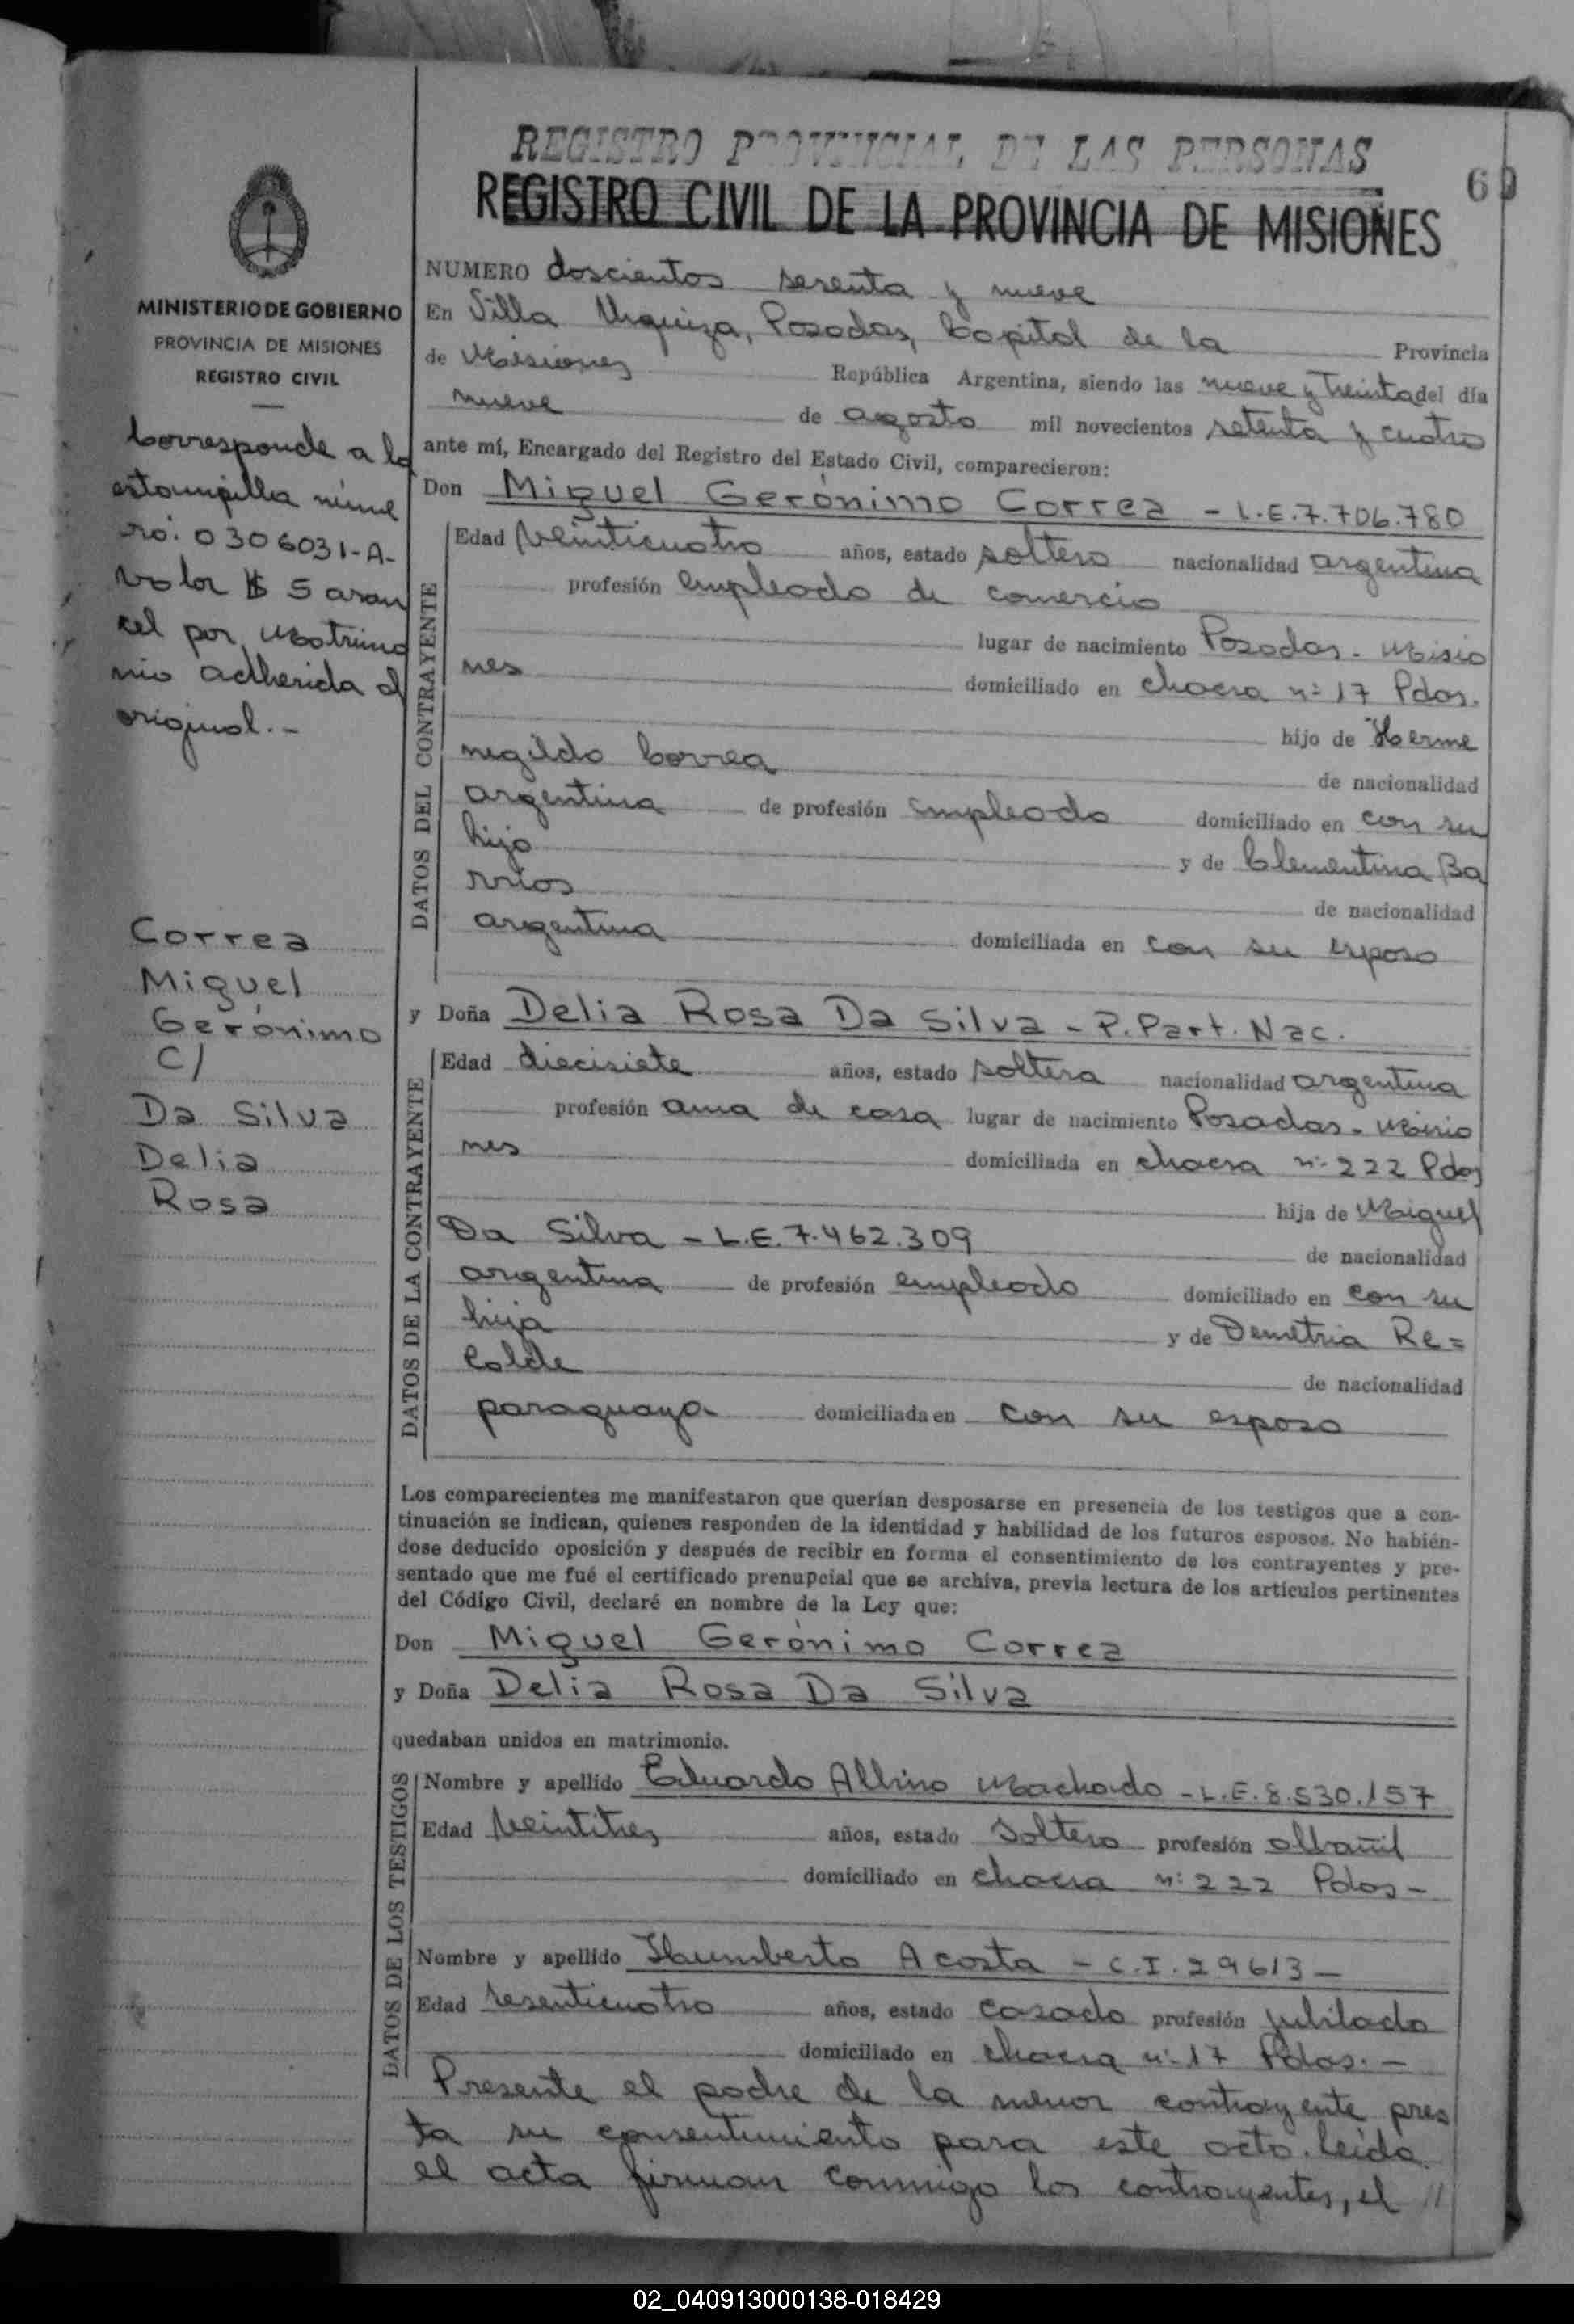 REGISTRO PROVINCIAL DE LAS PERSONAS
REGISTRO CIVIL DE LA PROVINCIA DE MISIONES
69
MINISTERIO DE GOBIERNO
PROVINCIA DE MISIONES
REGISTRO CIVIL
Corresponde a la
estampilla núme
ro: 0306031-A-
valor $ 5 aran
cel por Matrimo
nio adherida al
original.-
Correa
Miguel
Gerónimo
C/
Da Silva
Delia
Rosa
NUMERO doscientos sesenta y nueve
En Villa Urquiza, Posadas, Capital de la Provincia
de Misiones República Argentina, siendo las nueve y treinta del día
nueve de agosto mil novecientos setenta y cuatro
ante mí, Encargado del Registro del Estado Civil, comparecieron:
Don Miguel Gerónimo Correa - L.E.7.706.780
DATOS DEL CONTRAYENTE
Edad veinticuatro años, estado soltero nacionalidad argentina
profesión empleado de comercio
lugar de nacimiento Posadas - Misio
nes domiciliado en chacra nº 17 Pdas.
hijo de Herme
negildo Correa de nacionalidad
argentina de profesión empleado domiciliado en con su
hijo y de Clementina Ba
rrios de nacionalidad
argentina domiciliada en con su esposo
y Doña Delia Rosa Da Silva - P. Part. Nac.
DATOS DE LA CONTRAYENTE
Edad diecisiete años, estado soltera nacionalidad argentina
profesión ama de casa lugar de nacimiento Posadas - Misio
nes domiciliada en chacra nº 222 Pdas
hija de Miguel
Da Silva - L.E. 7.462.309 de nacionalidad
argentina de profesión empleado domiciliado en con su
hija y de Demetria Re=
calde de nacionalidad
paraguaya domiciliada en con su esposo
Los comparecientes me manifestaron que querían desposarse en presencia de los testigos que a con-
tinuación se indican, quienes responden de la identidad y habilidad de los futuros esposos. No habién-
dose deducido oposición y después de recibir en forma el consentimiento de los contrayentes y pre-
sentado que me fué el certificado prenupcial que se archiva, previa lectura de los artículos pertinentes
del Código Civil, declaré en nombre de la Ley que:
Don Miguel Gerónimo Correa
y Doña Delia Rosa Da Silva
quedaban unidos en matrimonio.
DATOS DE LOS TESTIGOS
Nombre y apellido Eduardo Albino Machado - L.E. 8.530.157
Edad veintitres años, estado soltero profesión albañil
domiciliado en chacra nº 222 Pdas -
Nombre y apellido Humberto Acosta - C.I. 29613 -
Edad sesenticuatro años, estado casado profesión jubilado
domiciliado en chacra nº 17 Pdas. -
Presente el padre de la menor contrayente pres
ta su consentimiento para este acto. Leída
el acta firman conmigo los contrayentes, el //
02_040913000138-018429